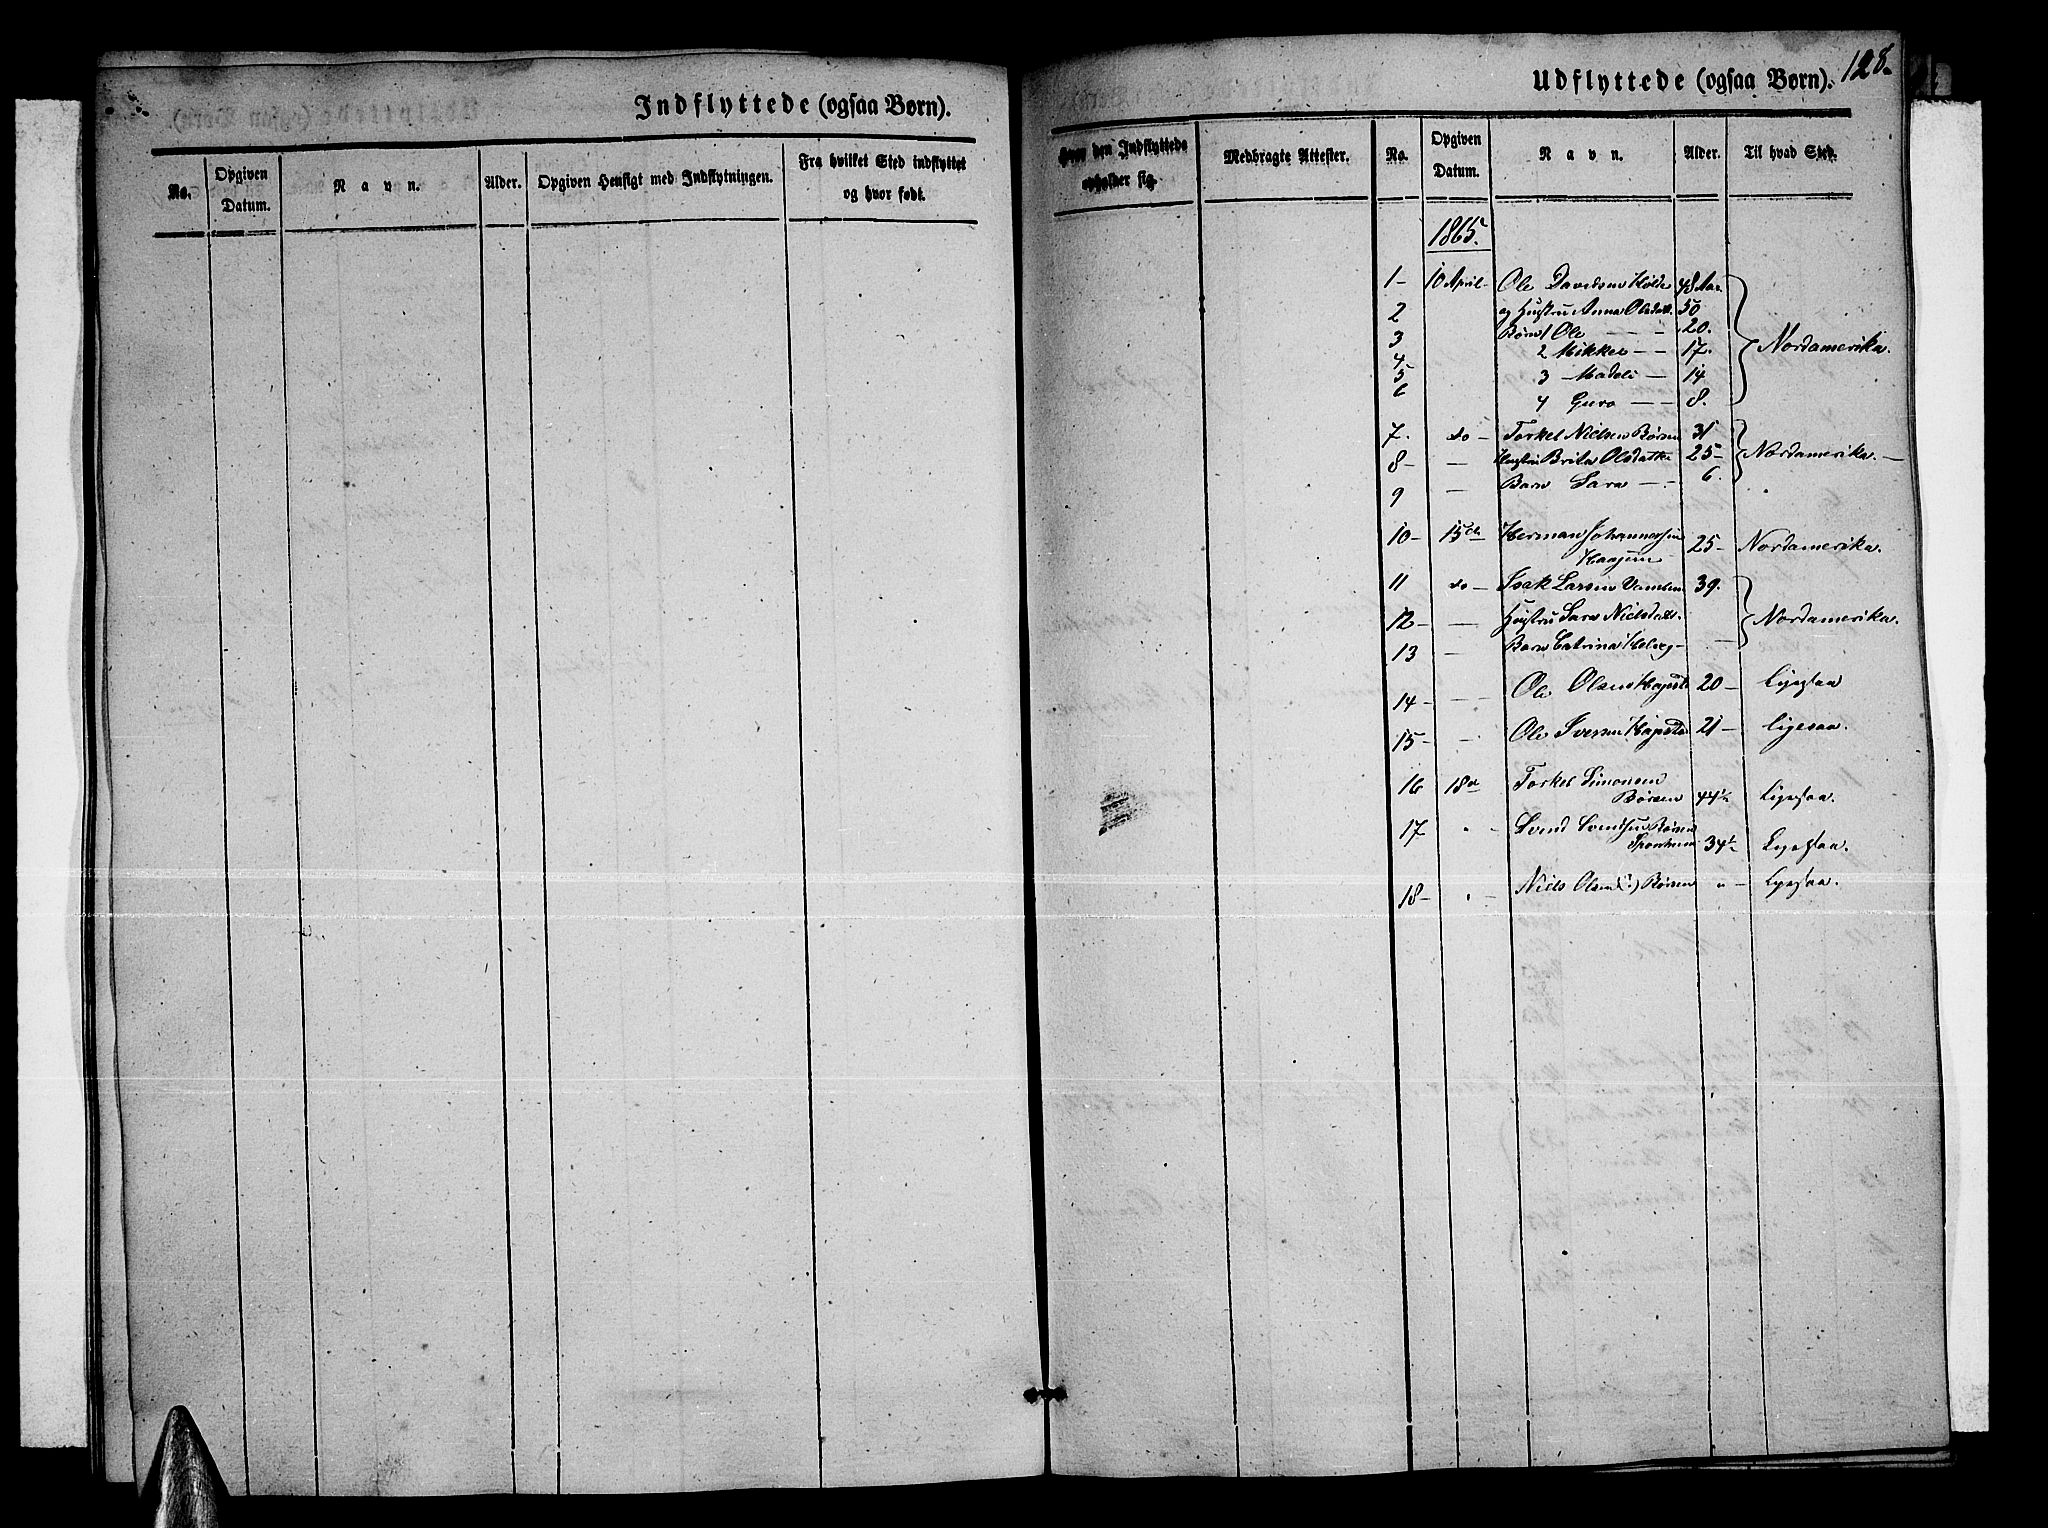 Indflyttede (ogsaa Børn).
No.
Opgiven Datum.
Navn.
Alder.
Opgiven Hensigt med Indflytningen.
Fra hvilket Sted indflyttet og hvor født.
128.
Udflyttede (ogsaa Børn).
Hvor den Indflyttede opholder sig.
Medbragte Attester.
No.
Opgiven Datum.
Navn.
Alder.
Til hvad Sted.
1865.
1 - 10 April - Ole Davidsen 48 Aar
2 og Hustru Anna Olsdatt. 50
3 Børn 1 Ole - - 20.
4 2 Mikkel - - 17. Nordamerika.
5 3 Madeli - 14
6 4 Guro - - 8.
7. do - Torkel Nielsen Børsen 31
8 - - Hustru Brita Olsdatter 25 - Nordamerika. -
9 - Barn Sara - - 6.
10 - 15de Herman Johannessen
25 - Nordamerika.
11 do - Isak Larsen 39.
12 - - Hustru Sara Nielsdatt. Nordamerika.
13 - Barn Catrina -
14 - - Ole Olsen 20 - Ligesaa
15 - - Ole Iversen 21 - Ligesaa.
16 18de Torkel Simonsen
Børsen 44 Ligesaa.
17 " - Svend Svendsen Børsen
34 Ligesaa.
18 - " - Niels Olsen (?) Børsen " - Ligesaa.